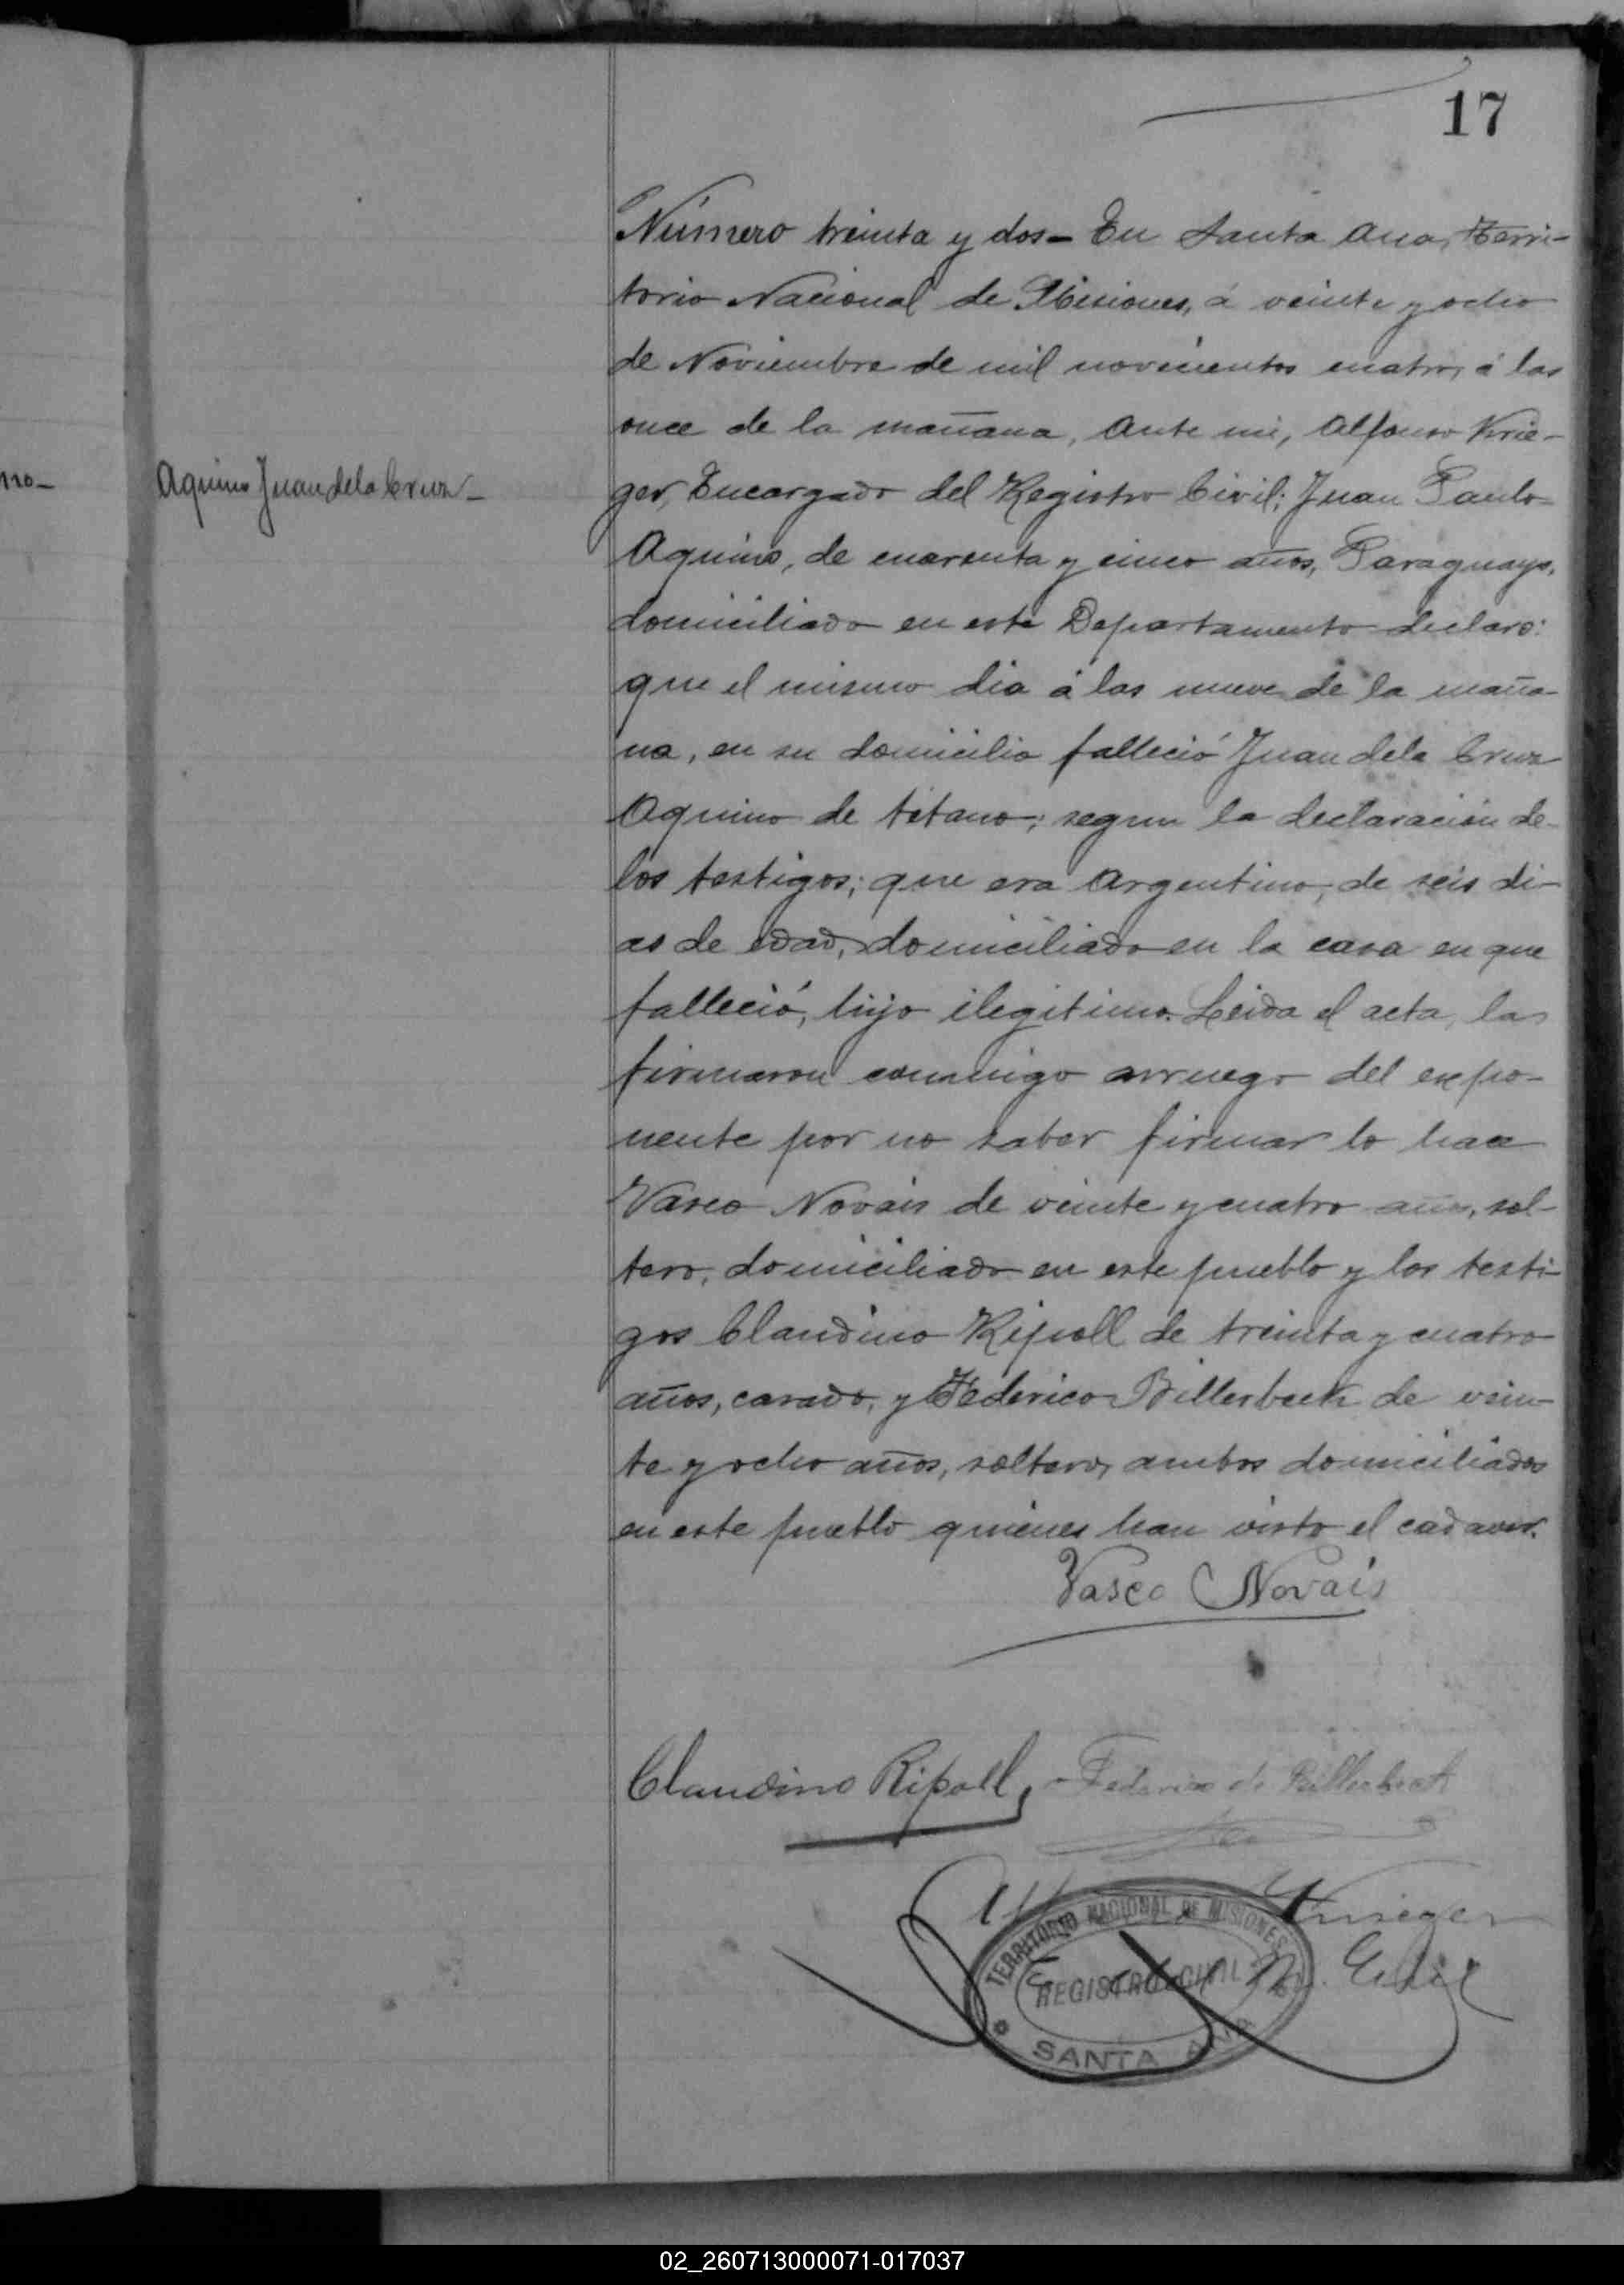 17
no-
Aquino Juan dela Cruz-
Número treinta y dos- En Santa Ana, Terri-
torio Nacional de Misiones, á veinte y ocho
de Noviembre de mil novecientos cuatro, á las
once de la mañana, Ante mi, Alfonso Krie-
ger, Encargado del Registro Civil; Juan Paulo
Aquino, de cuarenta y cinco años, Paraguayo,
domiciliado en este Departamento declaró:
que el mismo dia á las nueve de la maña-
na, en su domicilio falleció Juan dela Cruz
Aquino de tétano; segun la declaración de
los testigos; que era Argentino, de seis di-
as de edad, domiciliado en la casa en que
falleció, hijo ilegitimo. Leida el acta, la
firmaron conmigo arruego del expo-
nente por no saber firmar lo hace
Vasco Novais de veinte y cuatro años, sol-
tero, domiciliado en este pueblo y los testi-
gos Claudino Ripoll de treinta y cuatro
años, casado, y Federico Billerbeck de vein-
te y ocho años, soltero, ambos domiciliados
en este pueblo quienes han visto el cadaver.
Vasco Novais
Claudino Ripoll, Federico de Billerbeck
Krieger
TERRITORIO NACIONAL DE MISIONES
REGISTRO CIVIL
SANTA ANA
02_260713000071-017037